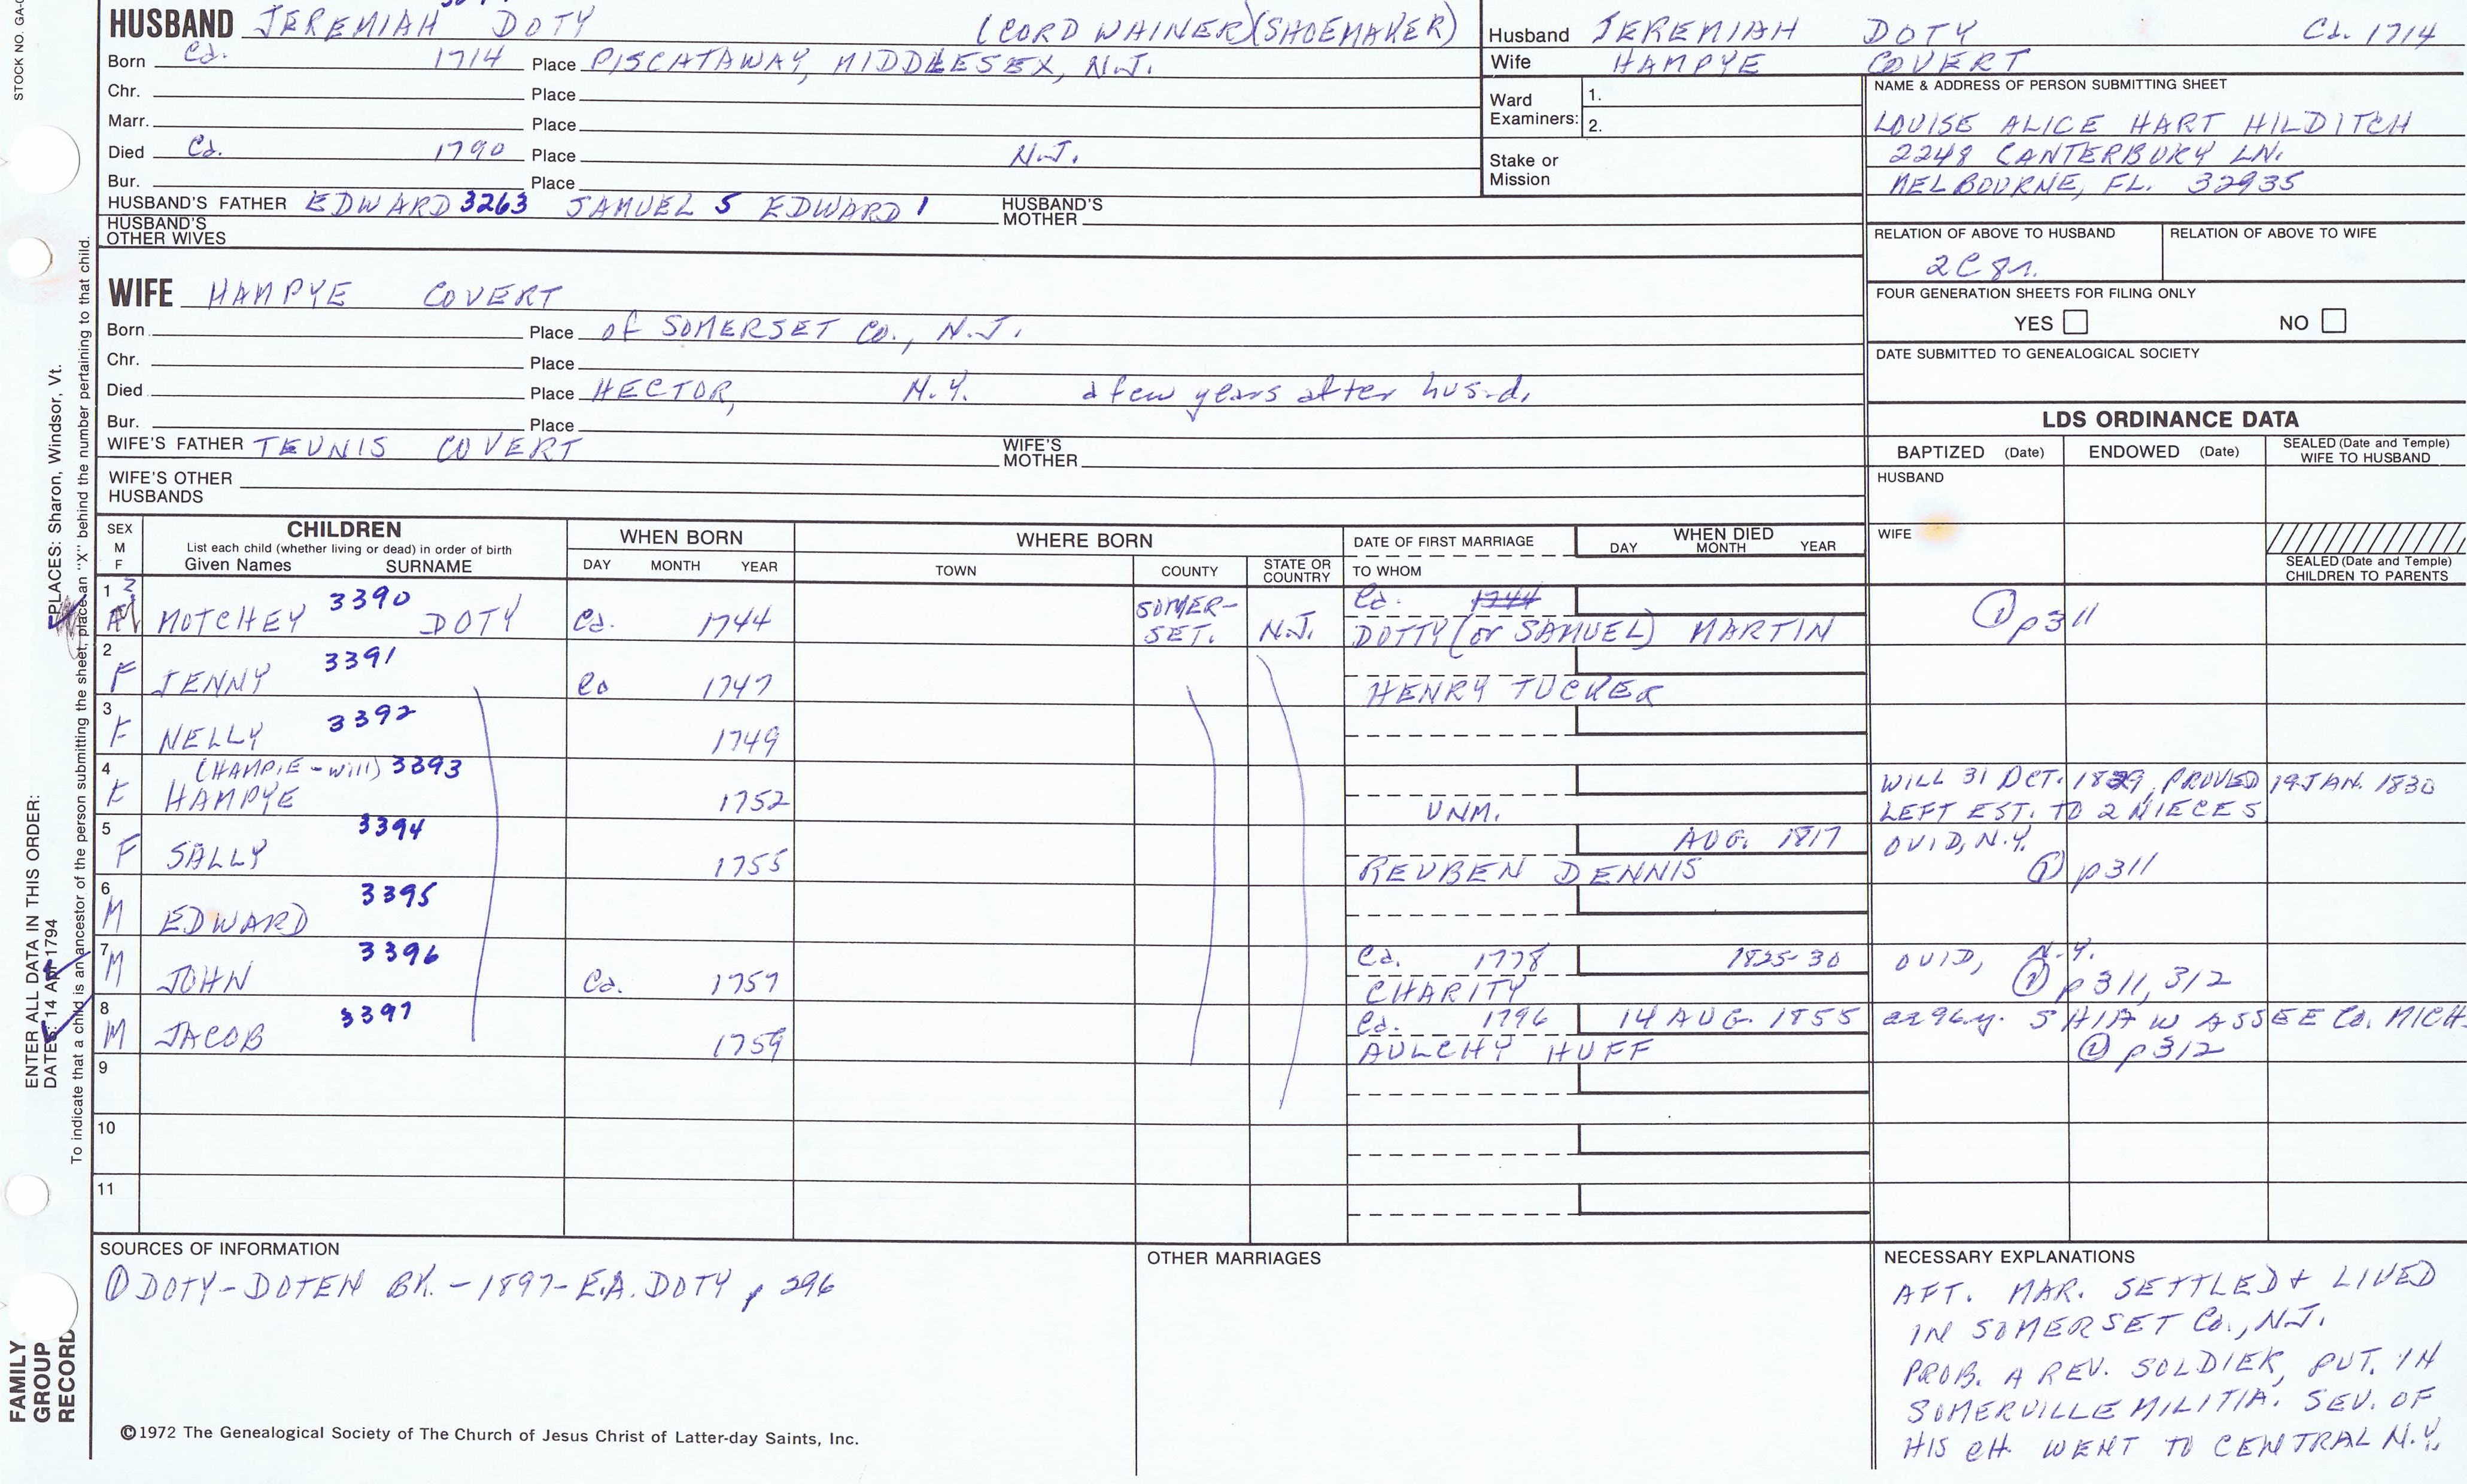 STOCK NO. GA-
HUSBAND JEREMIAH DOTY (CORD WAINER)(SHOEMAKER)
Born Ca. 1714 Place PISCATAWAY, MIDDLESEX, N.J.
Chr. Place
Marr. Place
Died Ca. 1790 Place N.J.
Bur. Place
HUSBAND'S FATHER EDWARD 3263 SAMUEL 5 EDWARD 1 HUSBAND'S MOTHER
HUSBAND'S OTHER WIVES
WIFE HAMPYE COVERT
Born Place of SOMERSET Co., N.J.
Chr. Place
Died Place HECTOR, N.Y. a few years after hus. d.
Bur. Place
WIFE'S FATHER TEUNIS COVERT WIFE'S MOTHER
WIFE'S OTHER HUSBANDS
Husband JEREMIAH DOTY Ca. 1714
Wife HAMPYE COVERT
Ward Examiners: 1.
2.
Stake or Mission
NAME & ADDRESS OF PERSON SUBMITTING SHEET
LOUISE ALICE HART HILDITCH
2248 CANTERBURY LN.
MELBOURNE, FL. 32935
RELATION OF ABOVE TO HUSBAND RELATION OF ABOVE TO WIFE
2C8r.
FOUR GENERATION SHEETS FOR FILING ONLY
YES NO
DATE SUBMITTED TO GENEALOGICAL SOCIETY
LDS ORDINANCE DATA
BAPTIZED (Date) ENDOWED (Date) SEALED (Date and Temple) WIFE TO HUSBAND
HUSBAND
WIFE
SEALED (Date and Temple) CHILDREN TO PARENTS
SEX M F
CHILDREN
List each child (whether living or dead) in order of birth
Given Names SURNAME
WHEN BORN
DAY MONTH YEAR
WHERE BORN
TOWN COUNTY STATE OR COUNTRY
DATE OF FIRST MARRIAGE
TO WHOM
WHEN DIED
DAY MONTH YEAR
1 MOTCHEY 3390 DOTY Ca. 1744 SOMER-SET. N.J. Ca. 1744
DOTTY (or SAMUEL) MARTIN ① p311
2 F JENNY 3391 Ca 1747 HENRY TUCKER
3 F NELLY 3392 1749
4 F (HAMPIE - will) 3393
HAMPYE 1752 UNM.
WILL 31 OCT. 1829, PROVED 19 JAN. 1830
LEFT EST. TO 2 NIECES
5 F SALLY 3394 1755 AUG. 1817 OVID, N.Y.
REUBEN DENNIS ① p311
6 M EDWARD 3395
7 M JOHN 3396 Ca. 1757 Ca. 1778 1825-30 OVID, N.Y.
CHARITY ① p311, 312
8 M JACOB 3397 1759 Ca. 1796 14 AUG. 1855 ae 96y. SHIAWASSEE Co. MICH.
AULCHY HUFF ① p312
9
10
11
SOURCES OF INFORMATION
① DOTY-DOTEN BK. - 1897 - E.A. DOTY p 296
OTHER MARRIAGES
NECESSARY EXPLANATIONS
AFT. MAR. SETTLED + LIVED
IN SOMERSET Co., N.J.
PROB. A REV. SOLDIER, PVT. IN
SOMERVILLE MILITIA. SEV. OF
HIS CH. WENT TO CENTRAL N.Y.
©1972 The Genealogical Society of The Church of Jesus Christ of Latter-day Saints, Inc.
FAMILY GROUP RECORD
ENTER ALL DATA IN THIS ORDER:
DATES: 14 Apr 1794
PLACES: Sharon, Windsor, Vt.
To indicate that a child is an ancestor of the person submitting the sheet, place an "X" behind the number pertaining to that child.